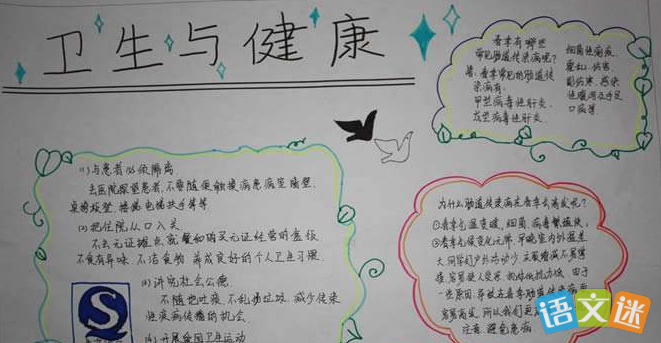 卫生与健康
春季有哪些
常见肠道传染病呢?
答:春季常见的肠道传
染病有:
甲型病毒性肝炎.
戊型病毒性肝炎.
细菌性痢疾.
霍乱.伤寒.
副伤寒.感染
性腹泻及手足
口病等
(1)与患者必须隔离.
去医院探望患者,不要随便触摸病患病室墙壁.
桌椅板壁.楼梯电梯扶手等等
(2)把住院从口入关
不去无证摊点就餐
不食有异味.不洁食物 养成良好的个人卫生习惯.
(3)讲究社会公德.
不随地吐痰.不乱扔垃圾.减少传染
性疾病传播的机会
(4)开展爱国卫生运动
为什么肠道传染病在春季会高发呢?
①春季气温变暖,细菌.病毒繁殖快.
②春季气候变化无常,早晚室内外温差
大.同学们户外活动少
由于
春季肠道传染病
所以我们更
注意.避免患病.
S
语文迷